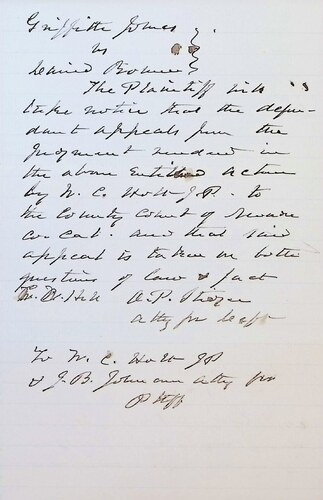 Griffith Jones
vs
David Bowen
The Plaintiff will
take notice that the defen-
dant appeals from the
Judgment rendered in
the above entitled action
by W. C. Holt J.P. to
the County Court of
co. Cal. and that said
appeal is taken on both
questions of law & fact
A.P.
atty for deft
To W. C. Holt JP
& J. B. Johnson atty for
Plff